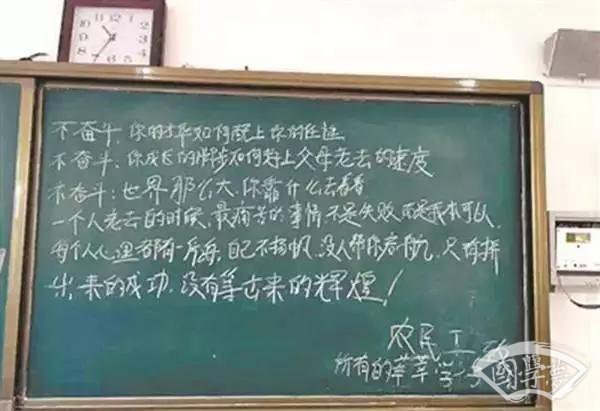 不奋斗,你的才华如何配上你的任性
不奋斗:你成长的脚步如何赶上父母老去的速度
不奋斗:世界那么大,你靠什么去看看
一个人老去的时候,最痛苦的事情不是失败,而是我本可以.
每个人心里都有一片海,自己不扬帆,没人帮你启航,只有拼
出来的成功,没有等出来的辉煌!
农民工 致
所有的莘莘学子
國學夢